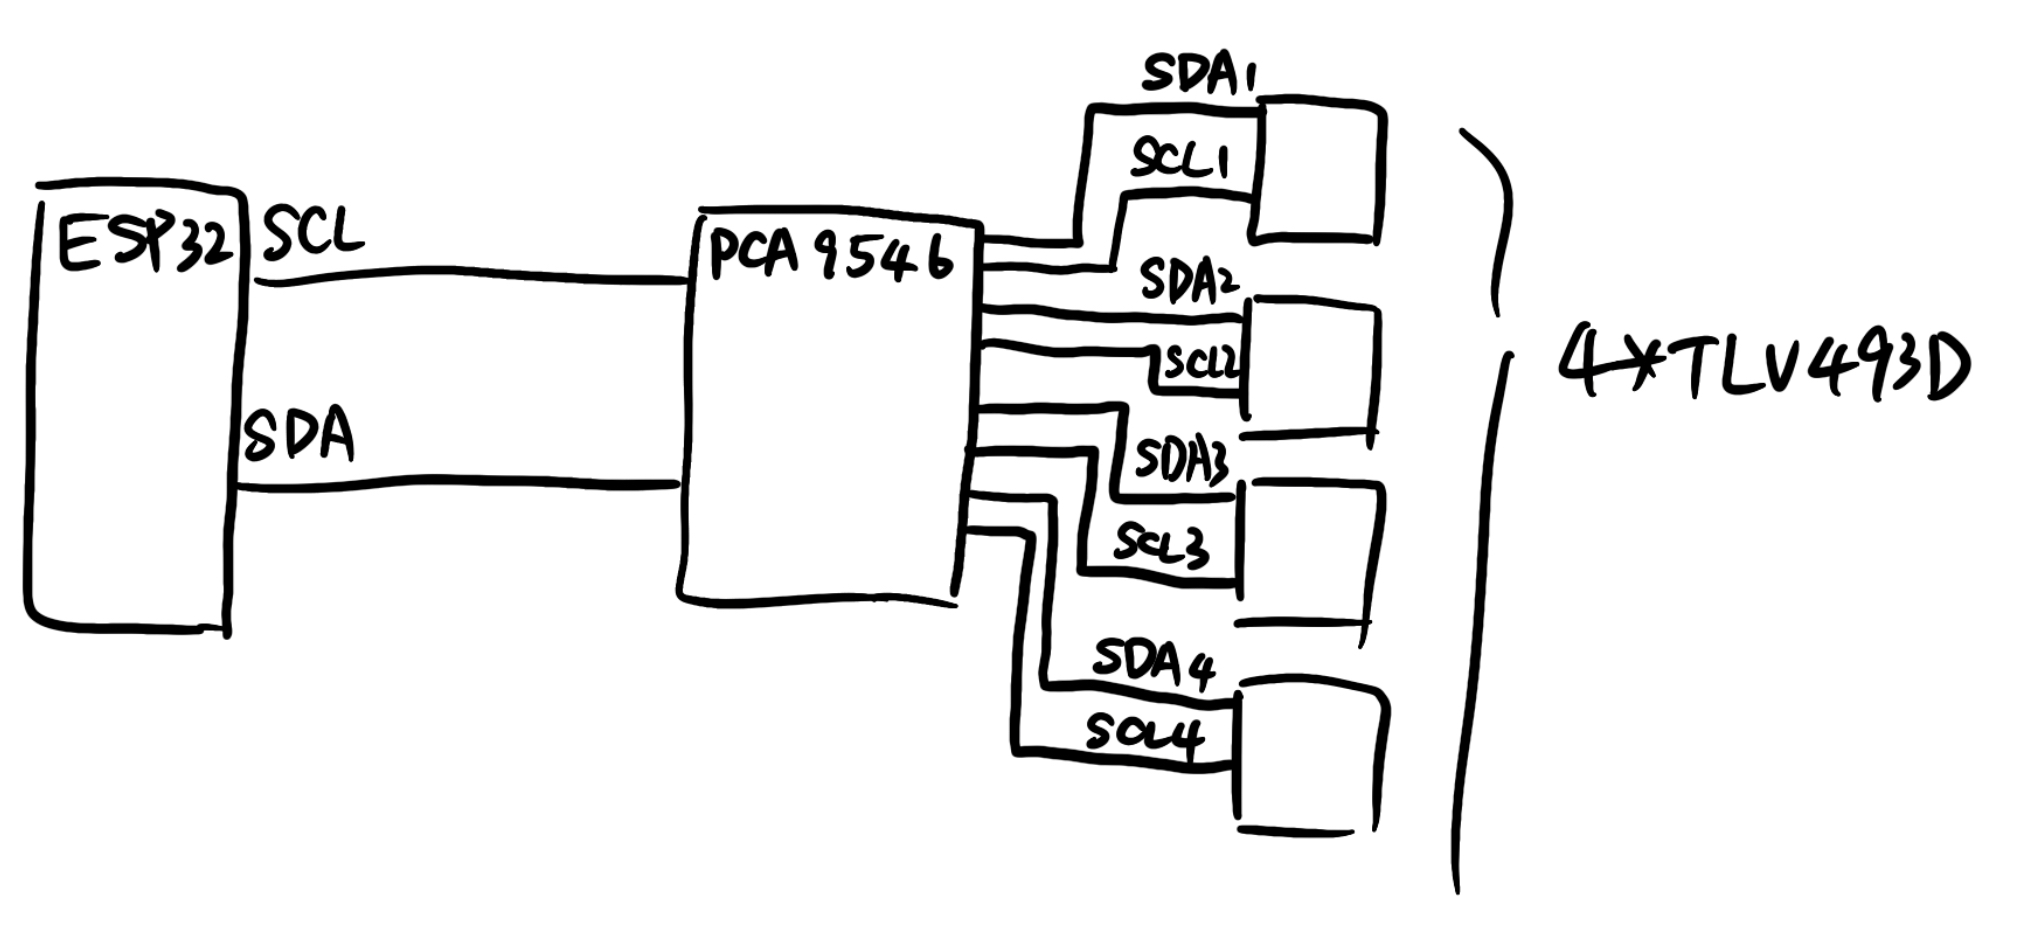 ESP32
SCL
SDA
PCA9546
SDA1
SCL1
SDA2
SCL2
SDA3
SCL3
SDA4
SCL4
4*TLV493D